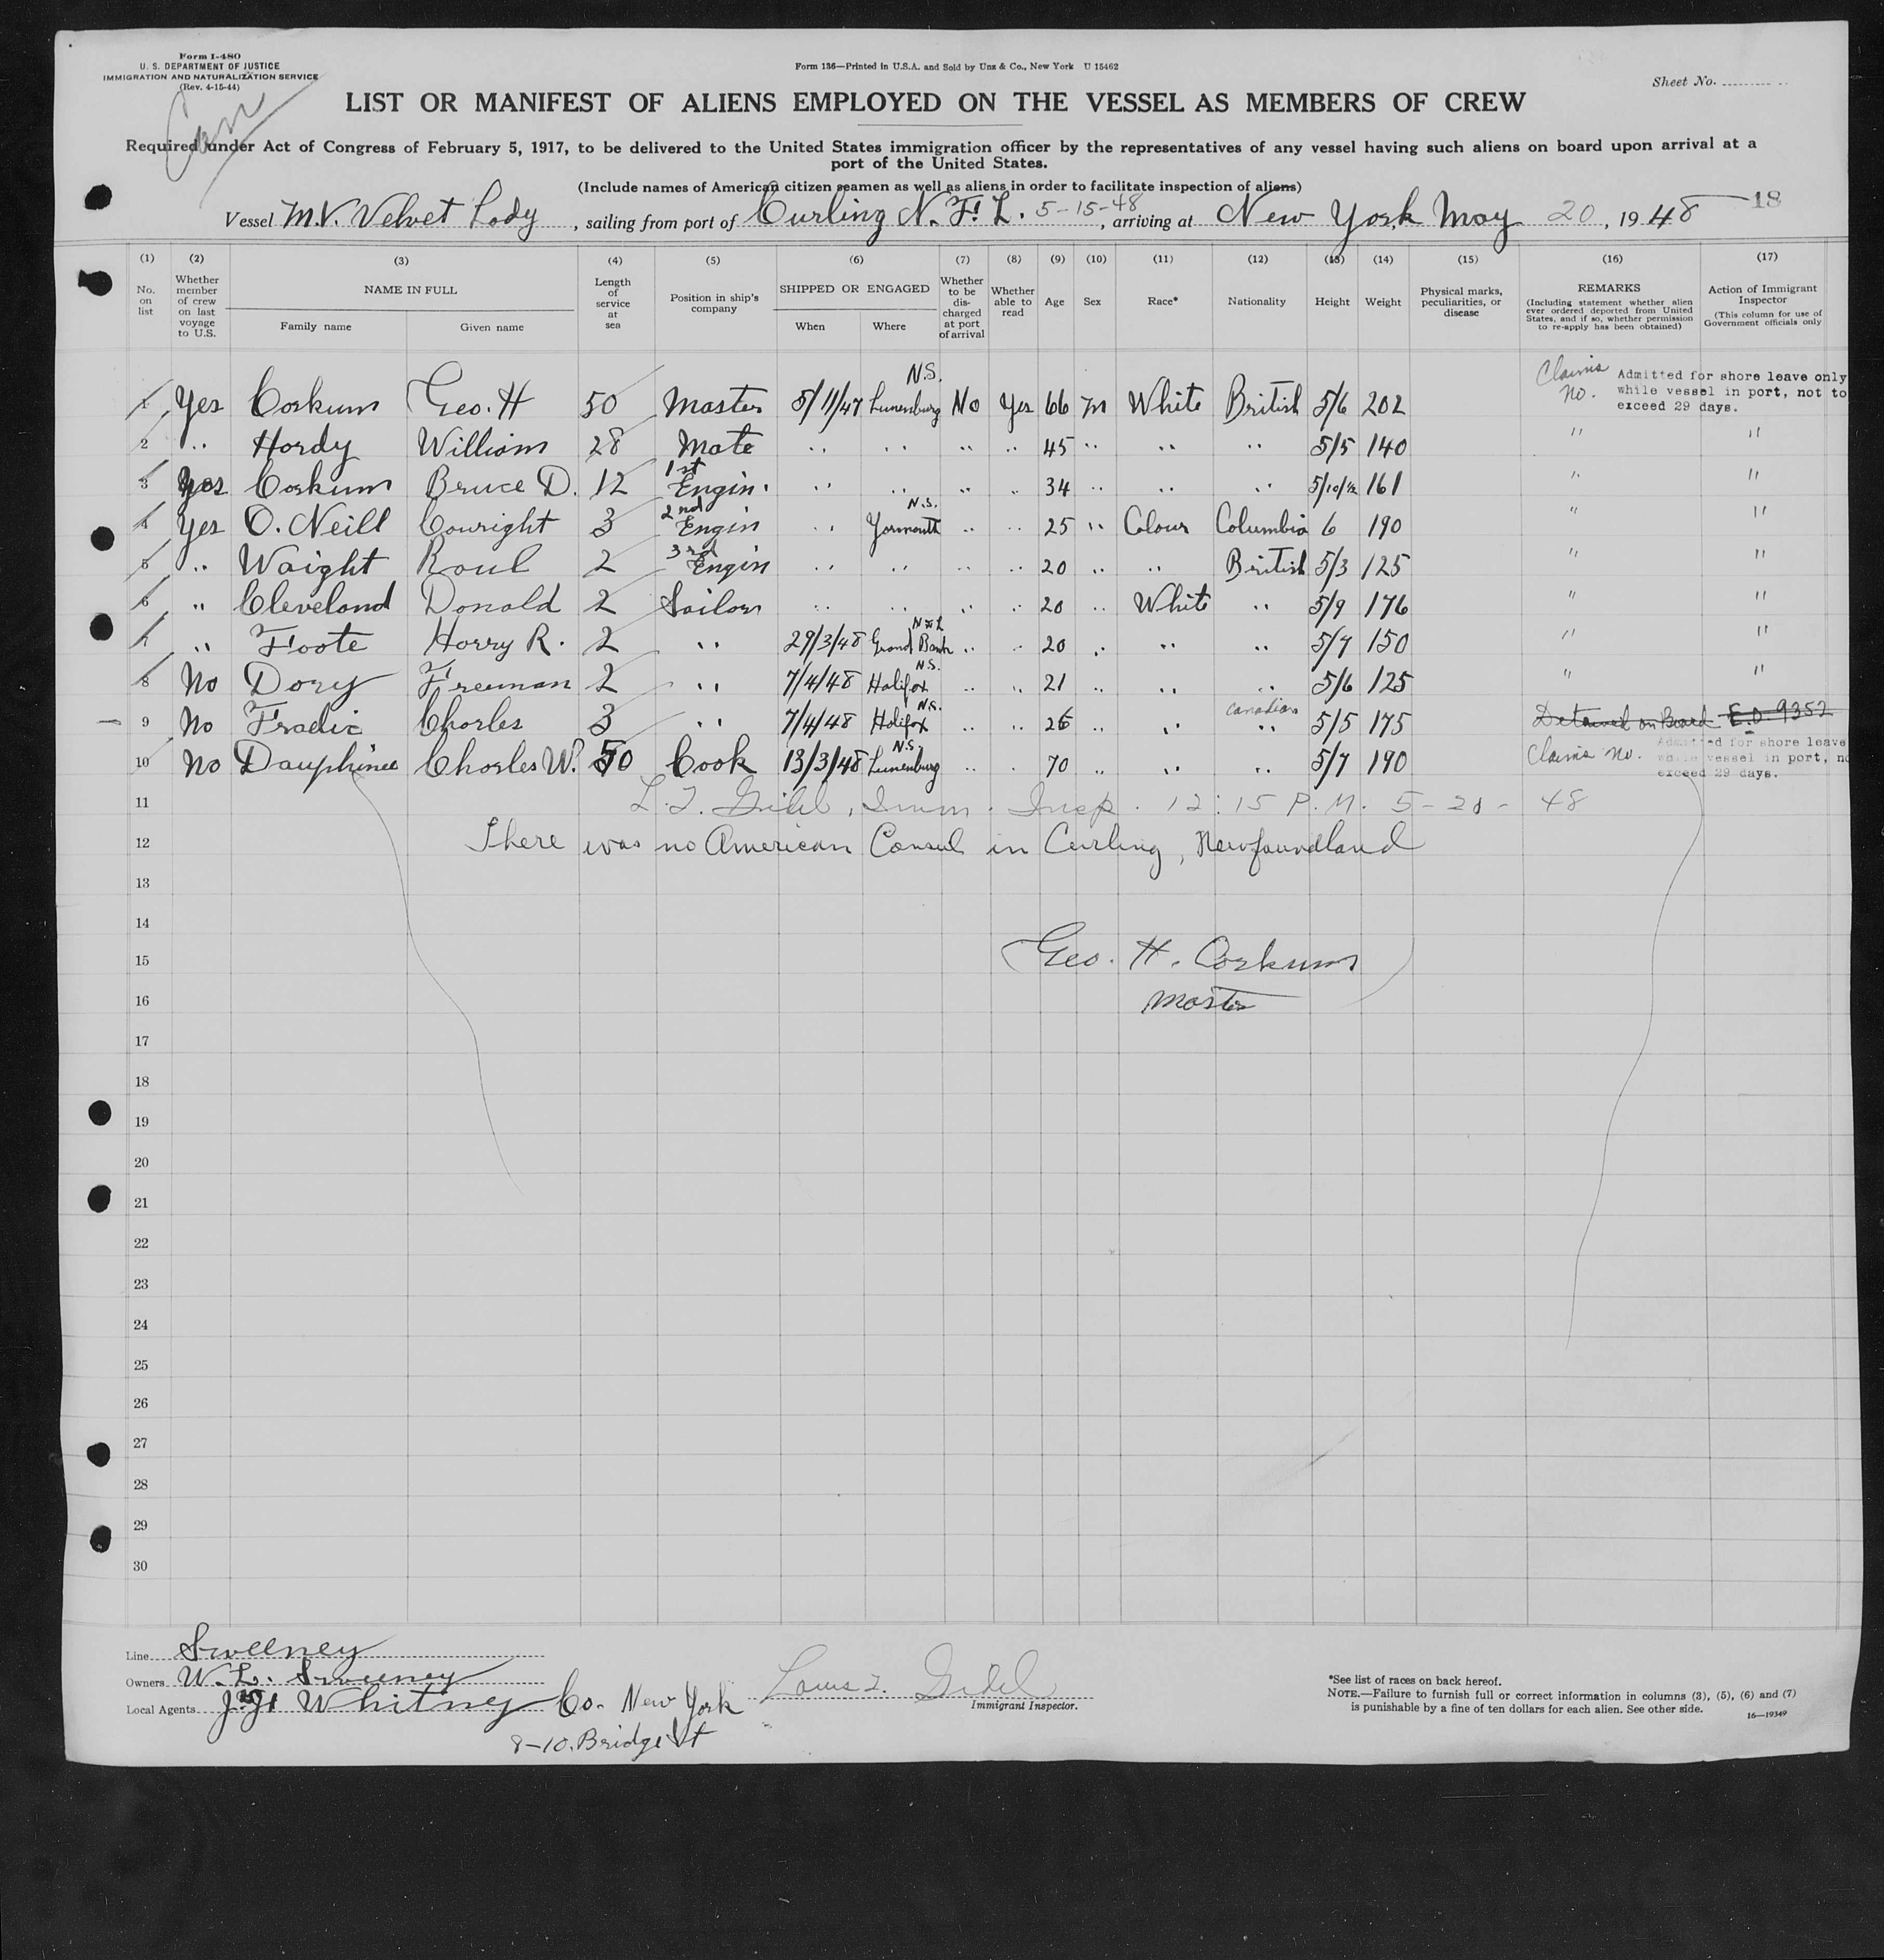 Form I-480
U. S. DEPARTMENT OF JUSTICE
IMMIGRATION AND NATURALIZATION SERVICE
(Rev. 4-15-44)
Form 136—Printed in U.S.A. and Sold by Unz & Co., New York U 15462
Sheet No.
LIST OR MANIFEST OF ALIENS EMPLOYED ON THE VESSEL AS MEMBERS OF CREW
Required under Act of Congress of February 5, 1917, to be delivered to the United States immigration officer by the representatives of any vessel having such aliens on board upon arrival at a
port of the United States.
(Include names of American citizen seamen as well as aliens in order to facilitate inspection of aliens)
18
Vessel M.V. Velvet Lady, sailing from port of Curling N.F.L. 5-15-48, arriving at New York May 20, 1948
(1) (2) (3) (4) (5) (6) (7) (8) (9) (10) (11) (12) (13) (14) (15) (16) (17)
No. on list
Whether member of crew on last voyage to U.S.
NAME IN FULL
Family name
Given name
Length of service at sea
Position in ship's company
SHIPPED OR ENGAGED
When
Where
Whether to be discharged at port of arrival
Whether able to read
Age
Sex
Race*
Nationality
Height
Weight
Physical marks, peculiarities, or disease
REMARKS
(Including statement whether alien ever ordered deported from United States, and if so, whether permission to re-apply has been obtained)
Action of Immigrant Inspector
(This column for use of Government officials only
1 Yes Corkum Geo. H 50 Master 5/11/47 Lunenburg N.S. No Yes 66 M White British 5/6 202 Claims No. Admitted for shore leave only while vessel in port, not to exceed 29 days.
2 " Hardy William 28 Mate " " " " 45 " " " 5/5 140 " "
3 Yes Corkum Bruce D. 12 1st Engin. " " " " 34 " " " 5/10/½ 161 " "
4 Yes O.Neill Couright 3 2nd Engin " Yarmouth N.S. " " 25 " Colour Columbia 6 190 " "
5 " Waight Raul 2 3rd Engin " " " " 20 " " British 5/3 125 " "
6 " Cleveland Donald 2 Sailor " " " " 20 " White " 5/9 176 " "
7 " Foote Harry R. 2 " 29/3/48 Grand Bank Nfl " " 20 " " " 5/7 150 " "
8 No Dory Freeman 2 " 7/4/48 Halifax N.S. " " 21 " " " 5/6 125 " "
9 No Fradic Charles 3 " 7/4/48 Halifax N.S. " " 26 " " Canadian " 5/5 175 Detained on Board E.O. 9352
10 No Dauphinee Charles W. 50 Cook 13/3/48 Lunenburg N.S. " " 70 " " " 5/7 190 Claims No. Admitted for shore leave while vessel in port, no exceed 29 days.
11 L.T. Gidel, Imm. Insp. 12:15 P.M. 5-20-48
12 There was no American Consul in Curling, Newfoundland
13
14
15 Geo. H. Corkum
16 Master
17
18
19
20
21
22
23
24
25
26
27
28
29
30
Line Sweeney
Owners W.L. Sweeney
Local Agents Whitney Co. New York
8-10. Bridge St
Louis T. Gidel
Immigrant Inspector.
*See list of races on back hereof.
NOTE.—Failure to furnish full or correct information in columns (3), (5), (6) and (7)
is punishable by a fine of ten dollars for each alien. See other side.
16—19349